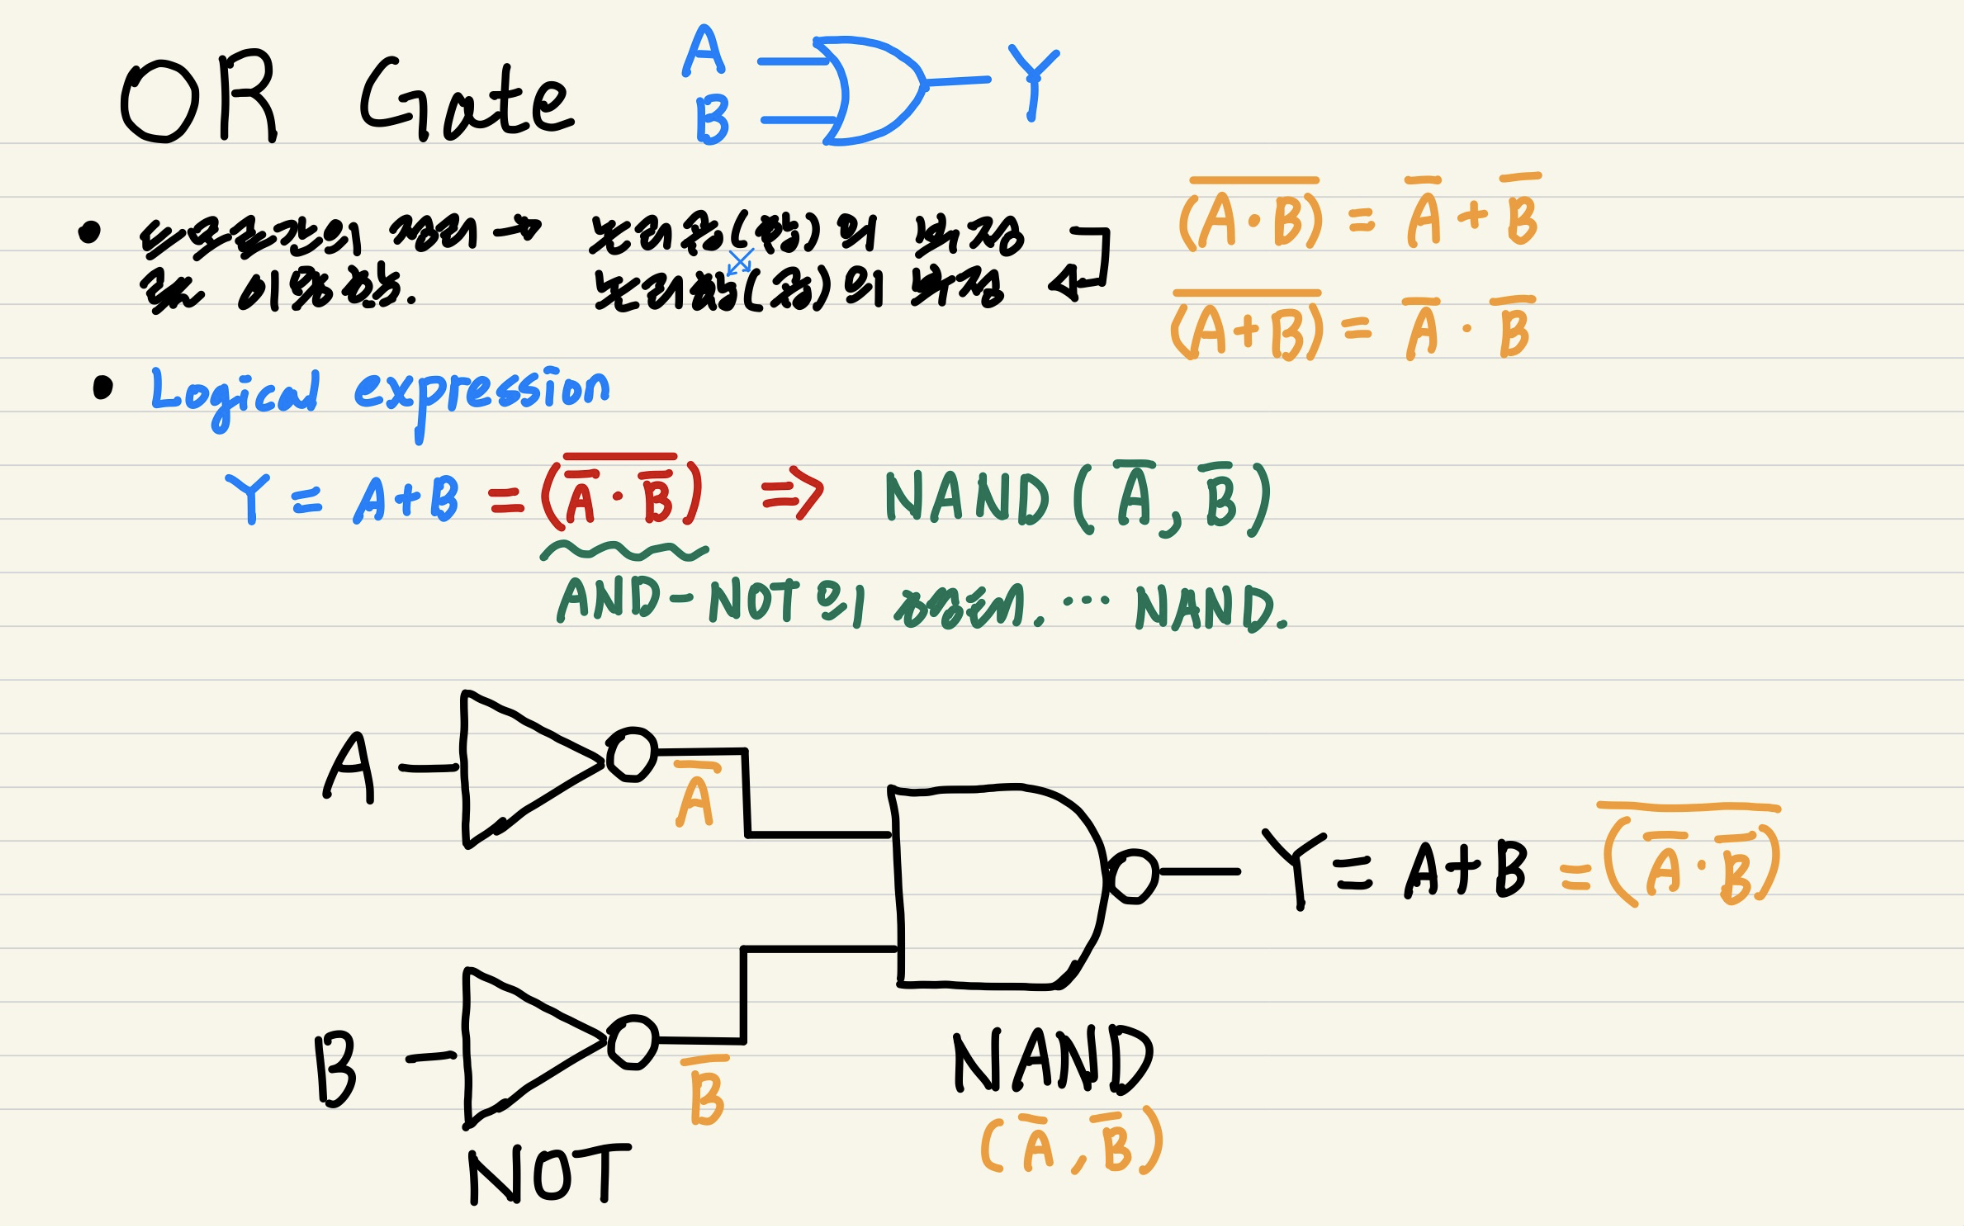 OR Gate
A
B
Y
• 드모르간의 정리 → 논리곱(합)의 부정
를 이용함. 논리합(곱)의 부정
(A·B)̅ = A̅ + B̅
(A+B)̅ = A̅ · B̅
• Logical expression
Y = A+B = (A̅ · B̅)̅ ⇒ NAND (A̅, B̅)
AND-NOT의 형태. ··· NAND.
A
A̅
Y = A+B = (A̅ · B̅)̅
B
B̅
NOT
NAND
(A̅, B̅)